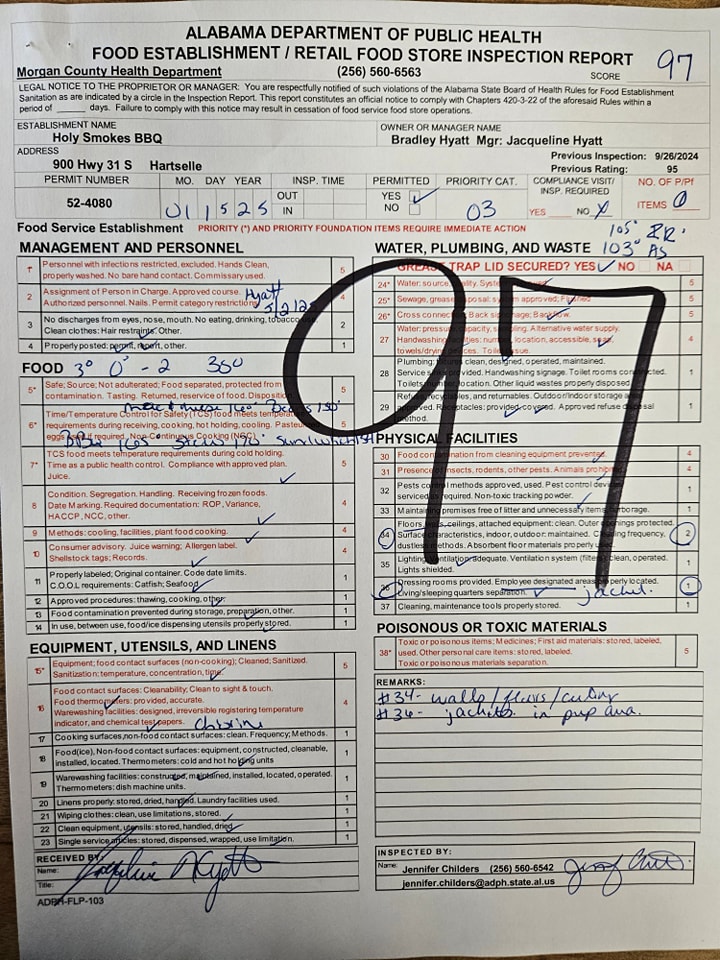 ALABAMA DEPARTMENT OF PUBLIC HEALTH
FOOD ESTABLISHMENT / RETAIL FOOD STORE INSPECTION REPORT
Morgan County Health Department (256) 560-6563 SCORE 97
LEGAL NOTICE TO THE PROPRIETOR OR MANAGER: You are respectfully notified of such violations of the Alabama State Board of Health Rules for Food Establishment
Sanitation as are indicated by a circle in the Inspection Report. This report constitutes an official notice to comply with Chapters 420-3-22 of the aforesaid Rules within a
period of ______ days. Failure to comply with this notice may result in cessation of food service food store operations.
ESTABLISHMENT NAME
Holy Smokes BBQ
OWNER OR MANAGER NAME
Bradley Hyatt Mgr: Jacqueline Hyatt
ADDRESS
900 Hwy 31 S Hartselle
Previous Inspection: 9/26/2024
Previous Rating: 95
PERMIT NUMBER
52-4080
MO. DAY YEAR
01 15 25
INSP. TIME
OUT
IN
PERMITTED
YES ✓
NO
PRIORITY CAT.
03
COMPLIANCE VISIT/
INSP. REQUIRED
YES ____ NO X
NO. OF P/Pf
ITEMS 0
Food Service Establishment PRIORITY (*) AND PRIORITY FOUNDATION ITEMS REQUIRE IMMEDIATE ACTION
105°
103°
97
MANAGEMENT AND PERSONNEL
1* Personnel with infections restricted, excluded. Hands Clean, properly washed. No bare hand contact. Commissary used. 5
2 Assignment of Person in Charge. Approved course. Authorized personnel. Nails. Permit category restrictions. Hyatt 4
3 No discharges from eyes, nose, mouth. No eating, drinking, tobacco. Clean clothes: Hair restraints. Other. 2
4 Properly posted: permit, report, other. 1
FOOD 3° 0° -2 36°
5* Safe; Source; Not adulterated; Food separated, protected from contamination. Tasting. Returned, reservice of food. Disposition. 5
6* Time/Temperature Control for Safety (TCS) food meets temperature requirements during receiving, cooking, hot holding, cooling. eggs used if required. Non-Continuous Cooking (NCC).
7* TCS food meets temperature requirements during cold holding. Time as a public health control. Compliance with approved plan. Juice. 5
8 Condition. Segregation. Handling. Receiving frozen foods. Date Marking. Required documentation: ROP, Variance, HACCP, NCC, other. 4
9 Methods: cooling, facilities, plant food cooking. 4
10 Consumer advisory. Juice warning; Allergen label. Shellstock tags; Records. 4
11 Properly labeled; Original container. Code date limits. C.O.O.L requirements: Catfish; Seafood 1
12 Approved procedures: thawing, cooking, other. 1
13 Food contamination prevented during storage, preparation, other. 1
14 In use, between use, food/ice dispensing utensils properly stored. 1
EQUIPMENT, UTENSILS, AND LINENS
15* Equipment; food contact surfaces (non-cooking); Cleaned; Sanitized. Sanitization: temperature, concentration, time. 5
16 Food contact surfaces: Cleanability; Clean to sight & touch. Food thermometers: provided, accurate. Warewashing facilities: designed, irreversible registering temperature indicator, and chemical test papers. Chlorine 4
17 Cooking surfaces, non-food contact surfaces: clean. Frequency, Methods. 1
18 Food(ice), Non-food contact surfaces: equipment, constructed, cleanable, installed, located. Thermometers: cold and hot holding units 1
19 Warewashing facilities: constructed, maintained, installed, located, operated. Thermometers: dish machine units. 1
20 Linens properly: stored, dried, handled. Laundry facilities used. 1
21 Wiping clothes: clean, use limitations, stored. 1
22 Clean equipment, utensils: stored, handled, dried. 1
23 Single service articles: stored, dispensed, wrapped, use limitation. 1
RECEIVED BY:
Name:
Title:
ADPH-FLP-103
WATER, PLUMBING, AND WASTE
GREASE TRAP LID SECURED? YES ✓ NO NA
24* Water: source, quality. System 5
25* Sewage, grease disposal: system approved; Flushed 5
26* Cross connection; Back siphonage; Backflow. 5
27 Water: pressure, capacity, sampling. Alternative water supply. Handwashing facilities: number, location, accessible, soap, towels/drying devices. Toilet tissue. 4
28 Plumbing: fixtures clean, designed, operated, maintained. Service sink provided. Handwashing signage. Toilet rooms constructed. Toilets: location. Other liquid wastes properly disposed. 1
29 Refuse, recyclables, and returnables. Outdoor/Indoor storage area approved. Receptacles: provided, covered. Approved refuse disposal method. 1
PHYSICAL FACILITIES
30 Food contamination from cleaning equipment prevented. 4
31 Presence of insects, rodents, other pests. Animals prohibited. 4
32 Pests control methods approved, used. Pest control devices serviced as required. Non-toxic tracking powder. 1
33 Maintained premises free of litter and unnecessary items. Harborage. 1
34 Floors, walls, ceilings, attached equipment: clean. Outer openings protected. Surface characteristics, indoor, outdoor: maintained. Cleaning frequency, dustless methods. Absorbent floor materials properly used. 2
35 Lighting. Ventilation: adequate. Ventilation system (filters): clean, operated. Lights shielded. 1
36 Dressing rooms provided. Employee designated areas properly located. Living/sleeping quarters separation. 1
37 Cleaning, maintenance tools properly stored. 1
POISONOUS OR TOXIC MATERIALS
38* Toxic or poisonous items; Medicines; First aid materials: stored, labeled, used. Other personal care items: stored, labeled. Toxic or poisonous materials separation. 5
REMARKS:
#34- walls/floors/ceiling
#36- jackets in prep area.
INSPECTED BY:
Name: Jennifer Childers (256) 560-6542
jennifer.childers@adph.state.al.us